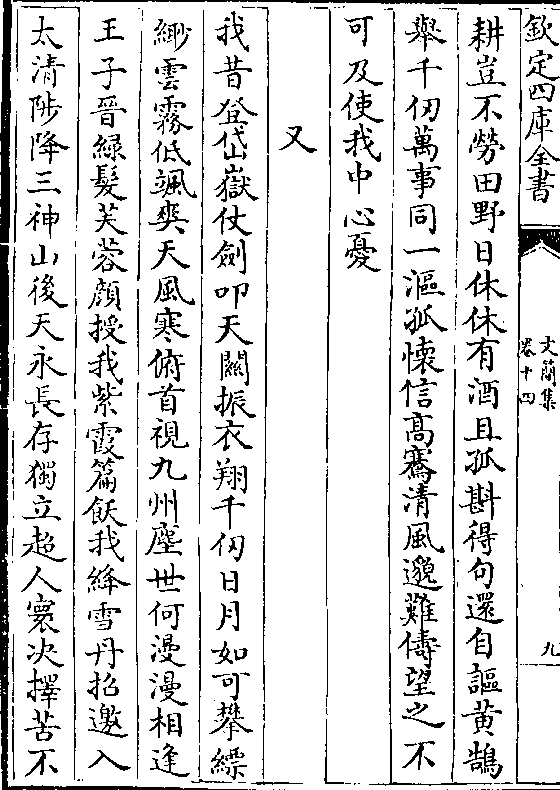 欽定四庫全書
文簡集
卷十四
九
耕豈不勞田野日休休有酒且孤斟得句還自謳黄鵠
舉千仞萬事同一漚孤懷信高騫清風邈難儔望之不
可及使我中心憂
又
我昔登岱嶽仗劍叩天關振衣翔千仞日月如可攀縹
緲雲霧低颯爽天風寒俯首視九州塵世何漫漫相逢
王子晉緑髮芙蓉顔授我紫霞篇飫我絳雪丹招邀入
太清陟降三神山後天永長存獨立超人寰决擇苦不